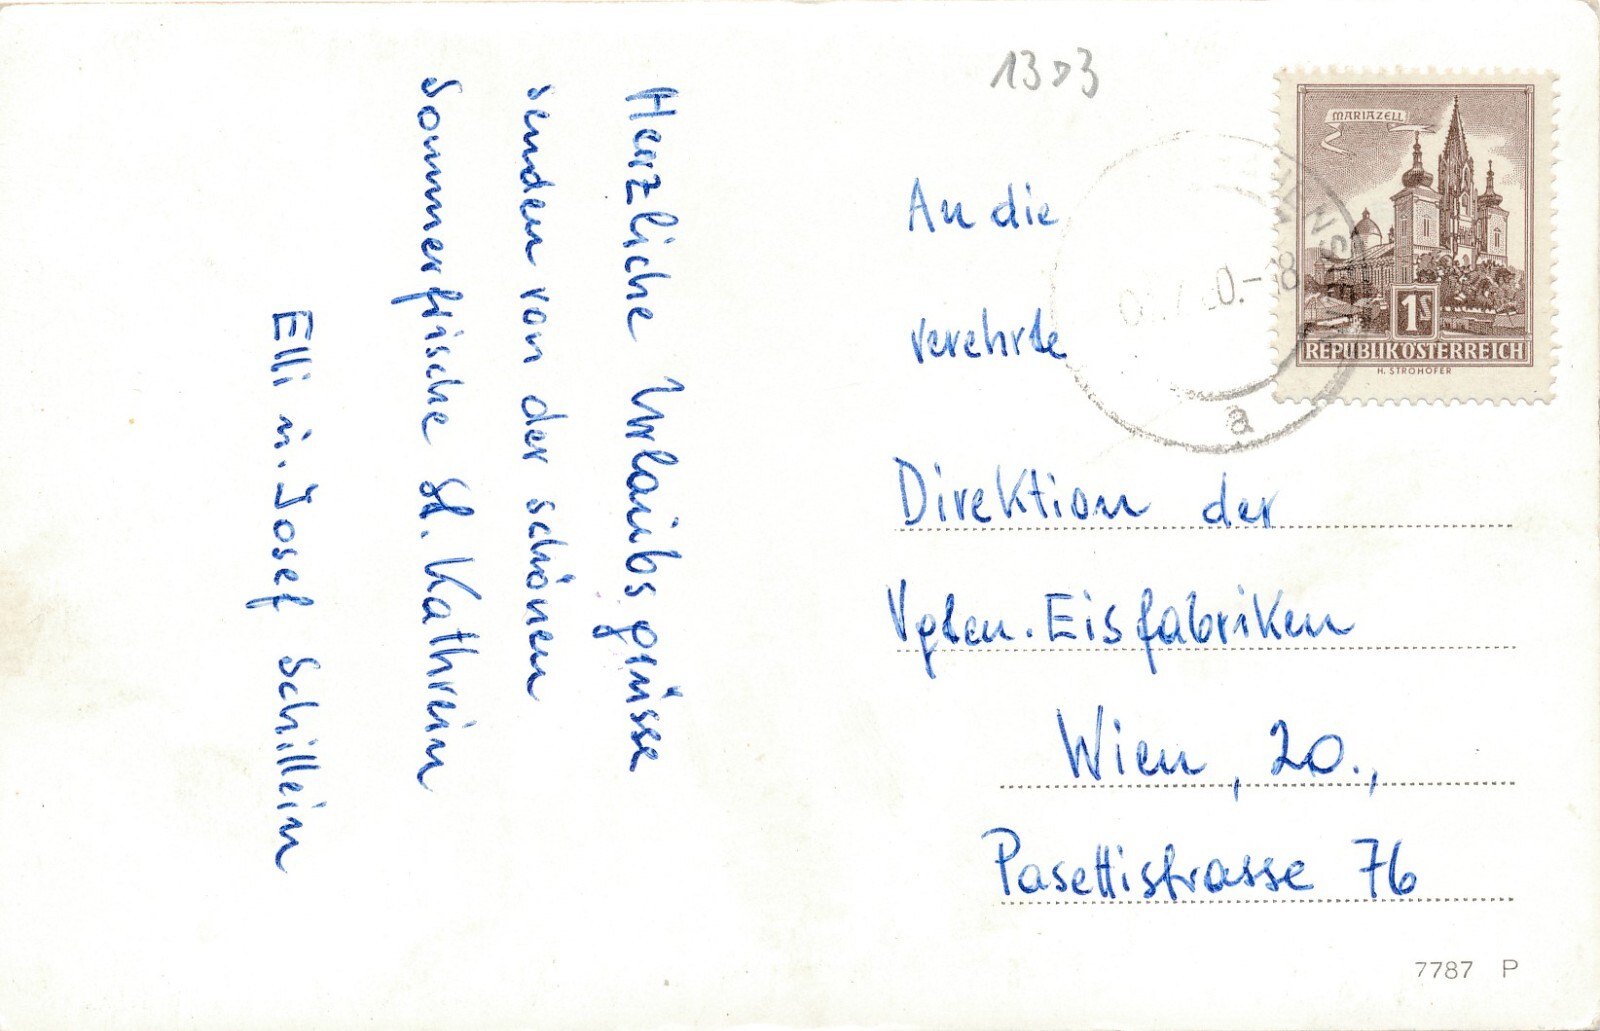 Herzliche Urlaubsgrüsse
senden von der schönen
Sommerfrische St. Kathrein
Elli u. Josef Schillein
1303
An die
verehrte
Direktion der
Vgten. Eisfabriken
Wien, 20.,
Pasettistrasse 76
MARIAZELL
1S
REPUBLIK ÖSTERREICH
H. STROHOFER
a
7787 P